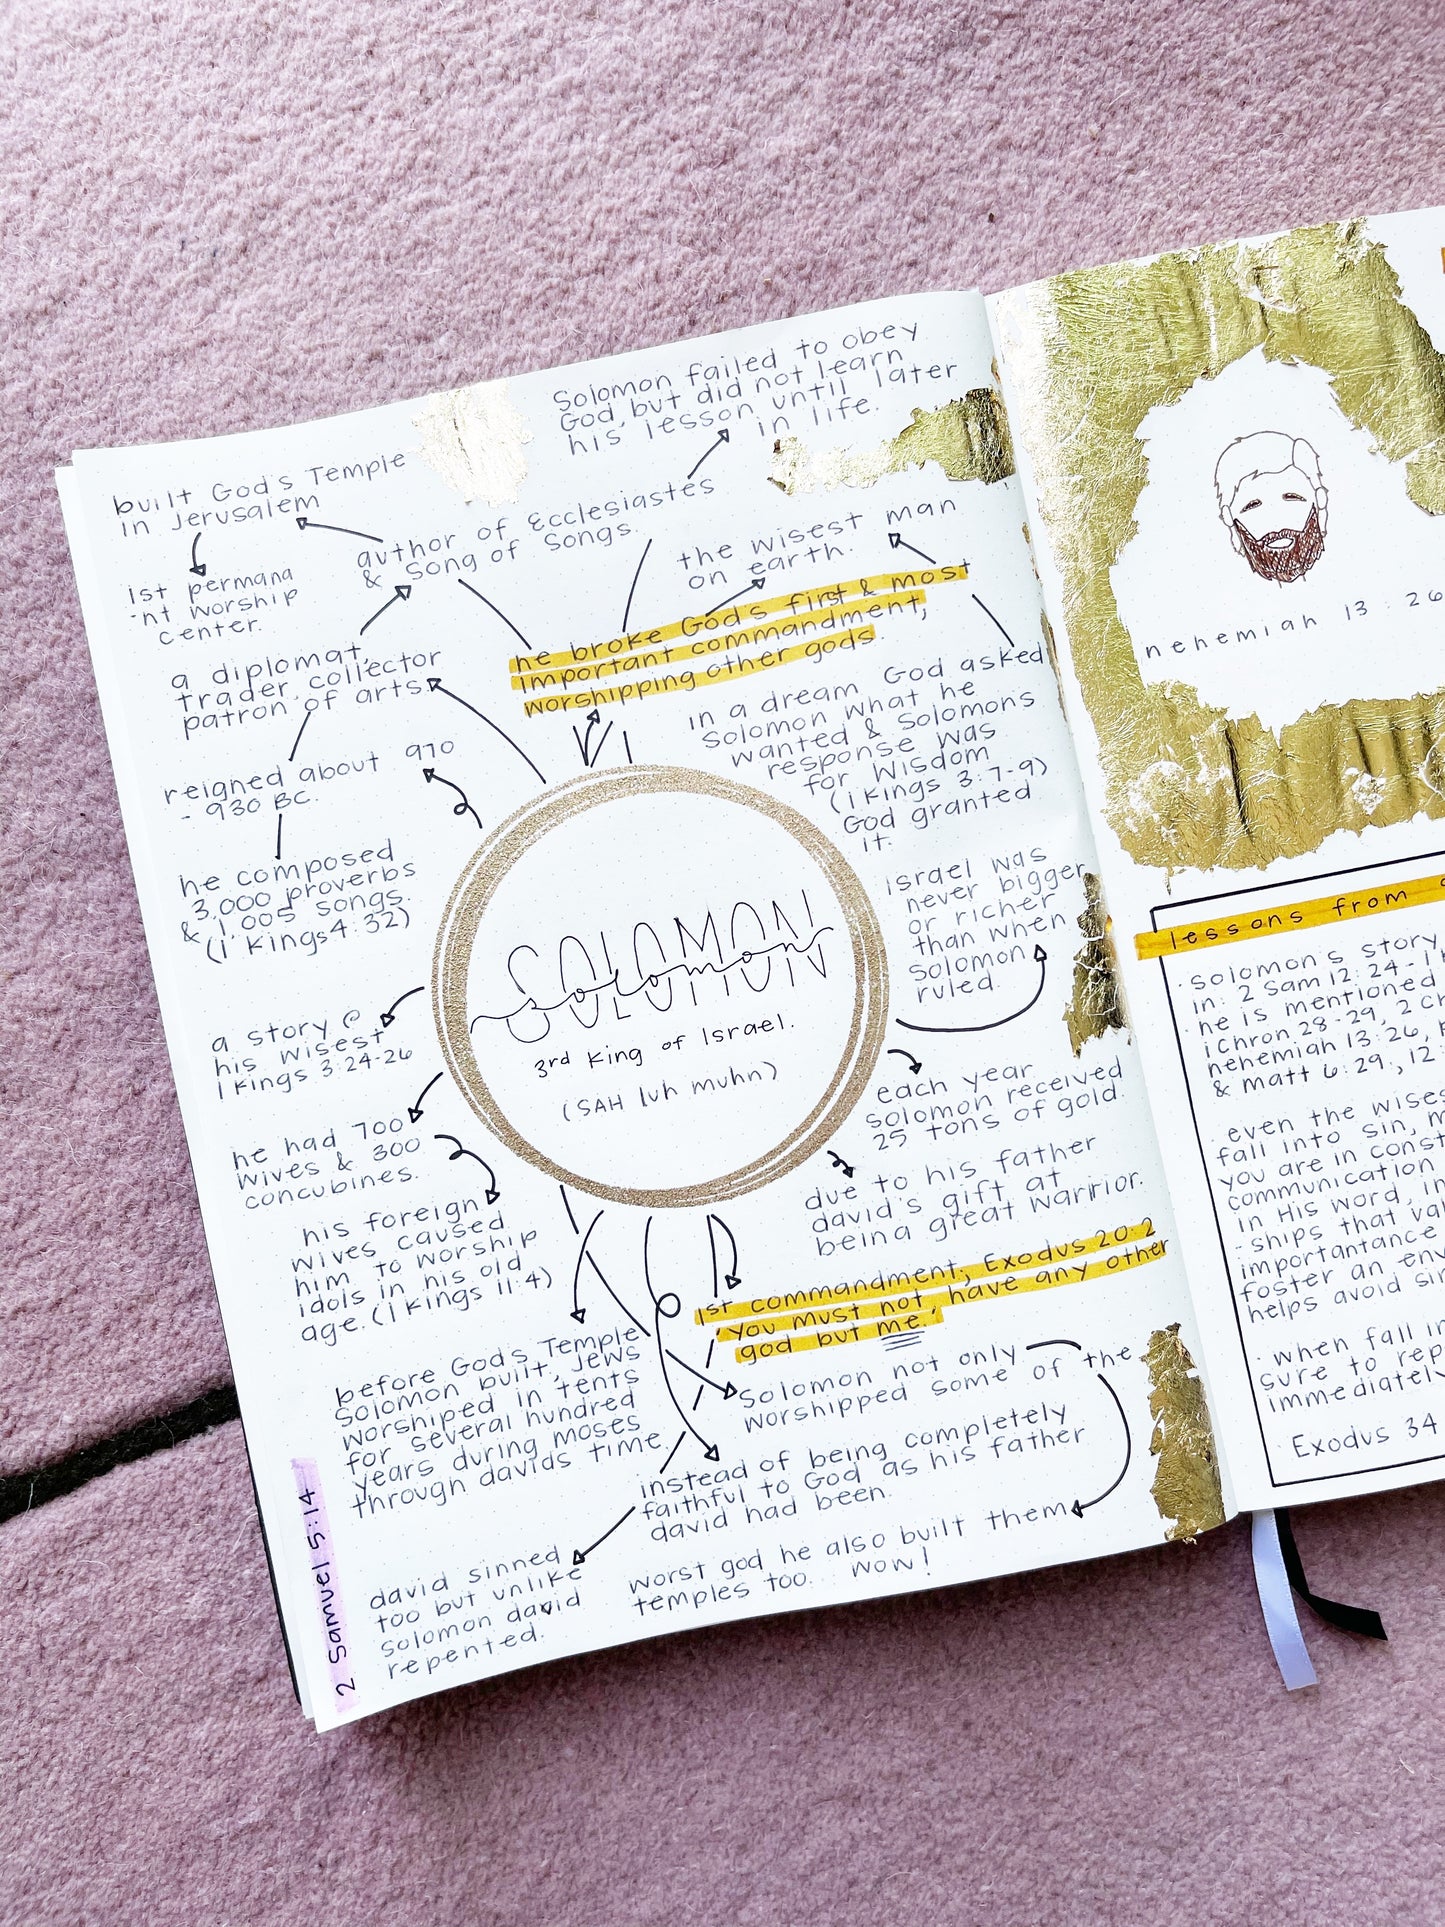 Solomon failed to obey
God, but did not learn
his lesson until later
in life.
built God's Temple
in Jerusalem
1st permana
-nt worship
center.
author of Ecclesiastes
& Song of Songs.
the wisest man
on earth.
he broke God's first & most
important commandment,
worshipping other gods.
a diplomat,
trader, collector
patron of arts
reigned about 970
- 930 BC.
he composed
3,000 proverbs
& 1,005 songs.
(1 Kings 4:32)
in a dream God asked
Solomon what he
wanted & Solomon's
response was
for wisdom
(1 Kings 3:7-9)
God granted
it.
israel was
never bigger
or richer
than when
solomon
ruled.
SOLOMON
solomon
3rd King of Israel.
(SAH luh muhn)
a story @
his wisest
1 Kings 3:24-26
he had 700
wives & 300
concubines.
his foreign
wives caused
him to worship
idols in his old
age. (1 Kings 11:4)
each year
solomon received
25 tons of gold.
due to his father
david's gift at
being a great warrior.
1st commandment, Exodus 20:2
you must not, have any other
god but me.
before God's Temple
Solomon built, Jews
worshiped in tents
for several hundred
years during moses
through davids time.
Solomon not only
worshipped some of the
instead of being completely
faithful to God as his father
david had been.
worst god he also built them
temples too... wow!
david sinned
too but unlike
solomon david
repented.
2 Samuel 5:14
nehemiah 13:26
lessons from
· solomon's story
in: 2 Sam 12:24-1
· he is mentioned
1 Chron 28-29, 2 Ch
nehemiah 13:26,
& matt 6:29, 12:
· even the wises
fall into sin,
you are in const
communication
in His word, in
-ships that val
importantance
foster an env
helps avoid sin
· when fall in
sure to rep
immediately
· Exodus 34